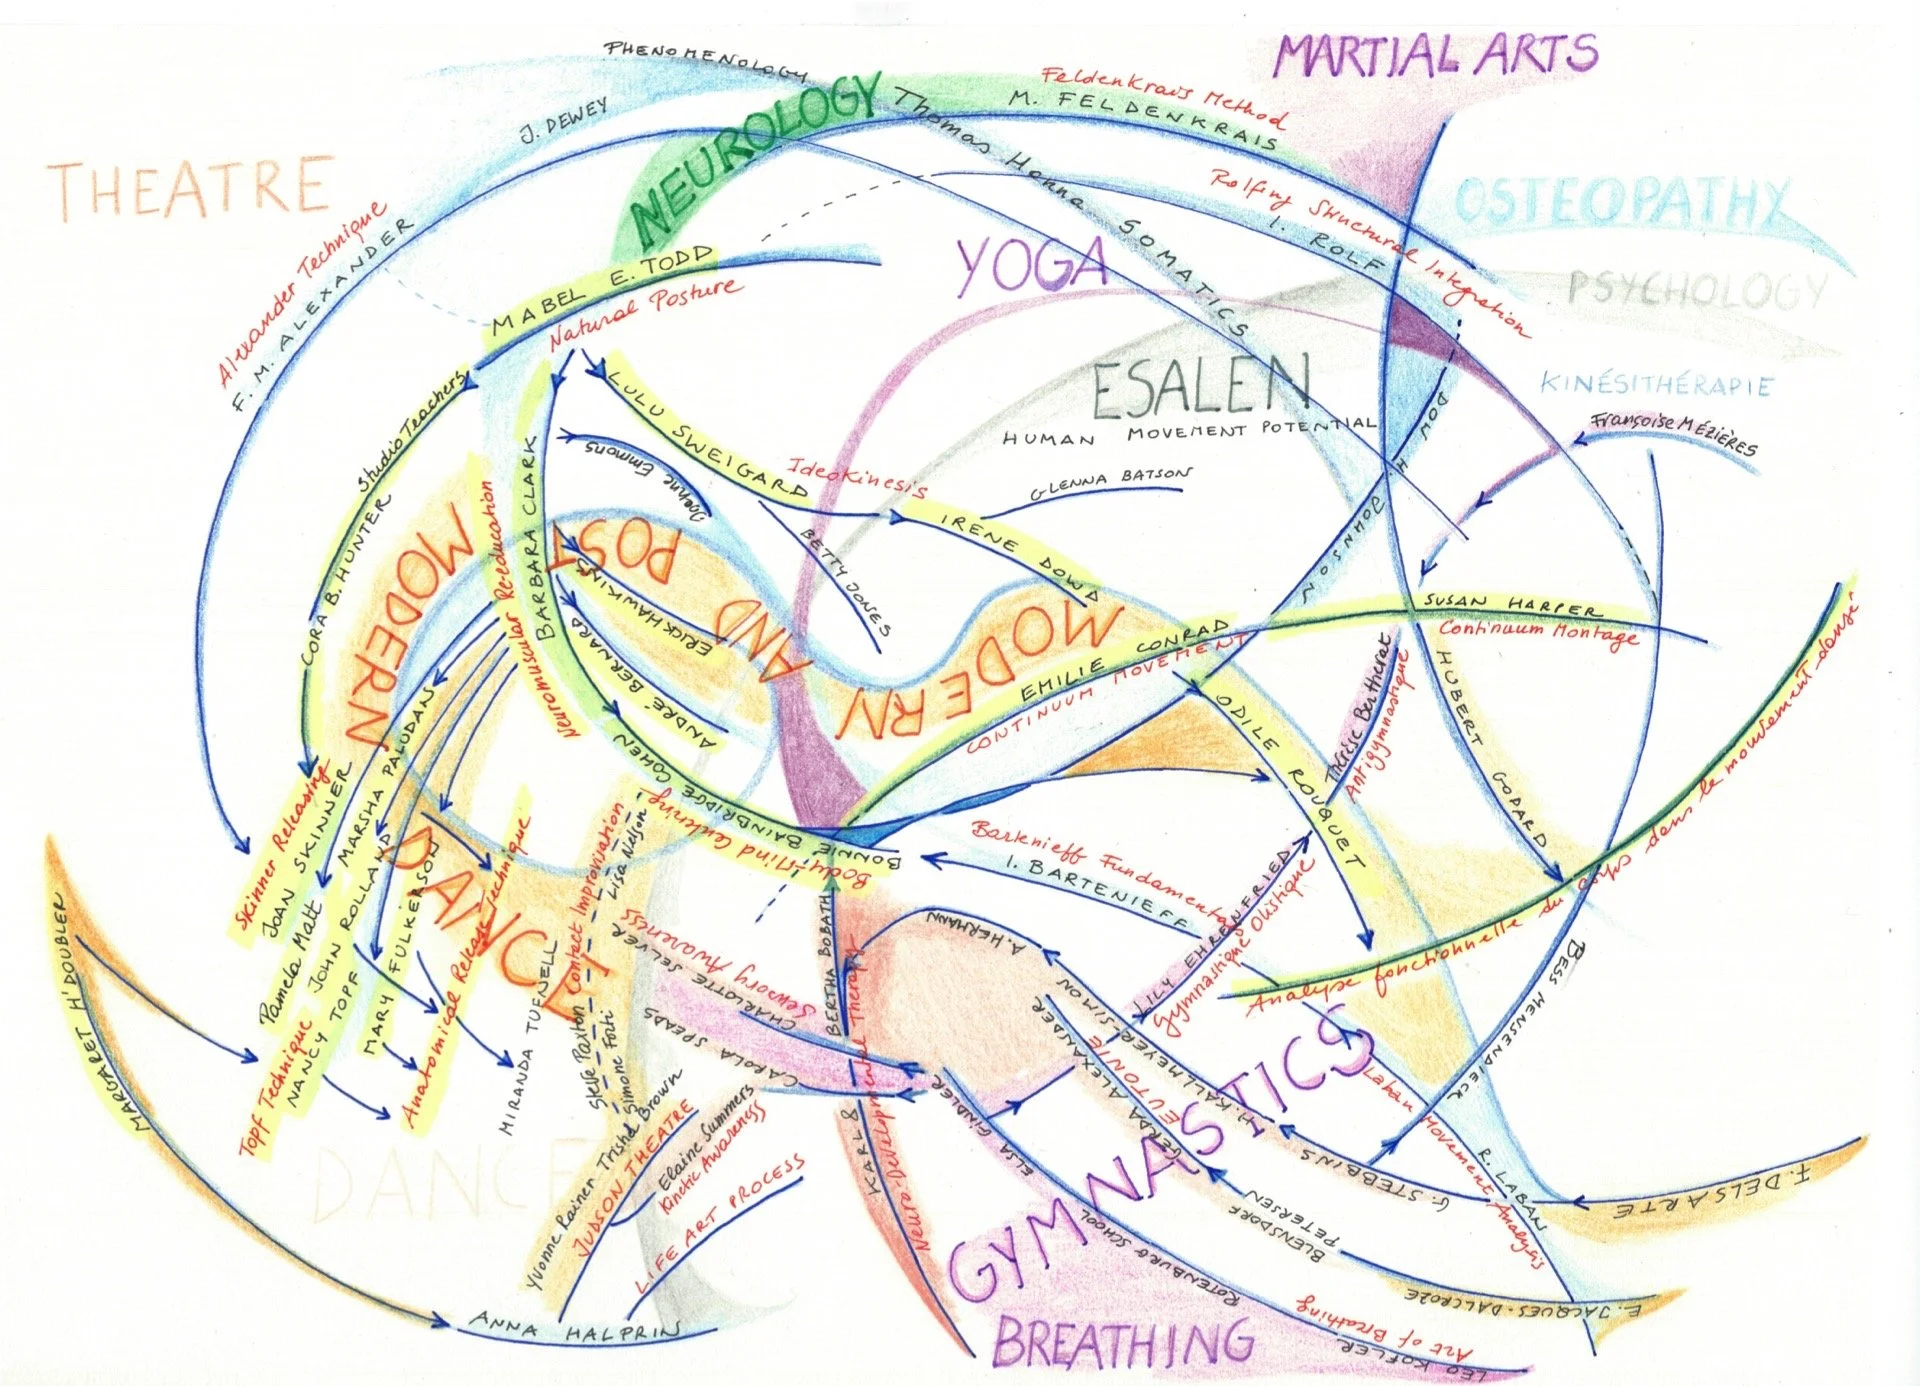 PHENOMENOLOGY
MARTIAL ARTS
J. DEWEY
NEUROLOGY
Feldenkrais Method
M. FELDENKRAIS
Thomas Hanna SOMATICS
THEATRE
Rolfing Structural Integration
I. ROLF
OSTEOPATHY
PSYCHOLOGY
Alexander Technique
F. M. ALEXANDER
MABEL E. TODD
Natural Posture
YOGA
ESALEN
HUMAN MOVEMENT POTENTIAL
KINÉSITHÉRAPIE
Françoise MÉZIÈRES
Studio Teachers
CORA B. HUNTER
LULU SWEIGARD
Ideokinesis
GLENNA BATSON
IRENE DOWD
BETTY JONES
Joanne Emmons
BARBARA CLARK
Neuromuscular Re-education
ERICK HAWKINS
ANDRÉ BERNARD
DON H. JOHNSON
MODERN
POST
AND
MODERN
DANCE
SUSAN HARPER
Continuum Montage
EMILIE CONRAD
CONTINUUM MOVEMENT
ODILE ROUQUET
Thérèse Bertherat
Antigymnastique
HUBERT GODARD
Analyse fonctionnelle du corps dans le mouvement dansé
BONNIE BAINBRIDGE COHEN
Body-Mind Centering
Bartenieff Fundamentals
I. BARTENIEFF
LILY EHRENFRIED
Gymnastique Olistique
Skinner Releasing
JOAN SKINNER
MARSHA PALUDAN
Pamela Matt
JOHN ROLLAND
Topf Technique
NANCY TOPF
MARY FULKERSON
Anatomical Release Technique
MIRANDA TUFNELL
Contact Improvisation
Lisa Nelson
Steve Paxton
Simone Forti
Yvonne Rainer Trisha Brown
JUDSON THEATRE
Elaine Summers
Kinetic Awareness
LIFE ART PROCESS
ANNA HALPRIN
MARGARET H'DOUBLER
DANCE
CHARLOTTE SELVER
Sensory Awareness
CAROLA SPEADS
BERTHA BOBATH
KARL &
Neuro-Developmental Therapy
A. HERMANN
H. KALLMEYER-SIMON
GERDA ALEXANDER
EUTONIE
ELSA GINDLER
G. STEBBINS
BESS MENSENDIECK
Laban Movement Analysis
R. LABAN
F. DELSARTE
BLENSDORF
PETERSEN
E. JACQUES-DALCROZE
ROTENBURG SCHOOL
GYMNASTICS
BREATHING
Art of Breathing
LEO KOFLER